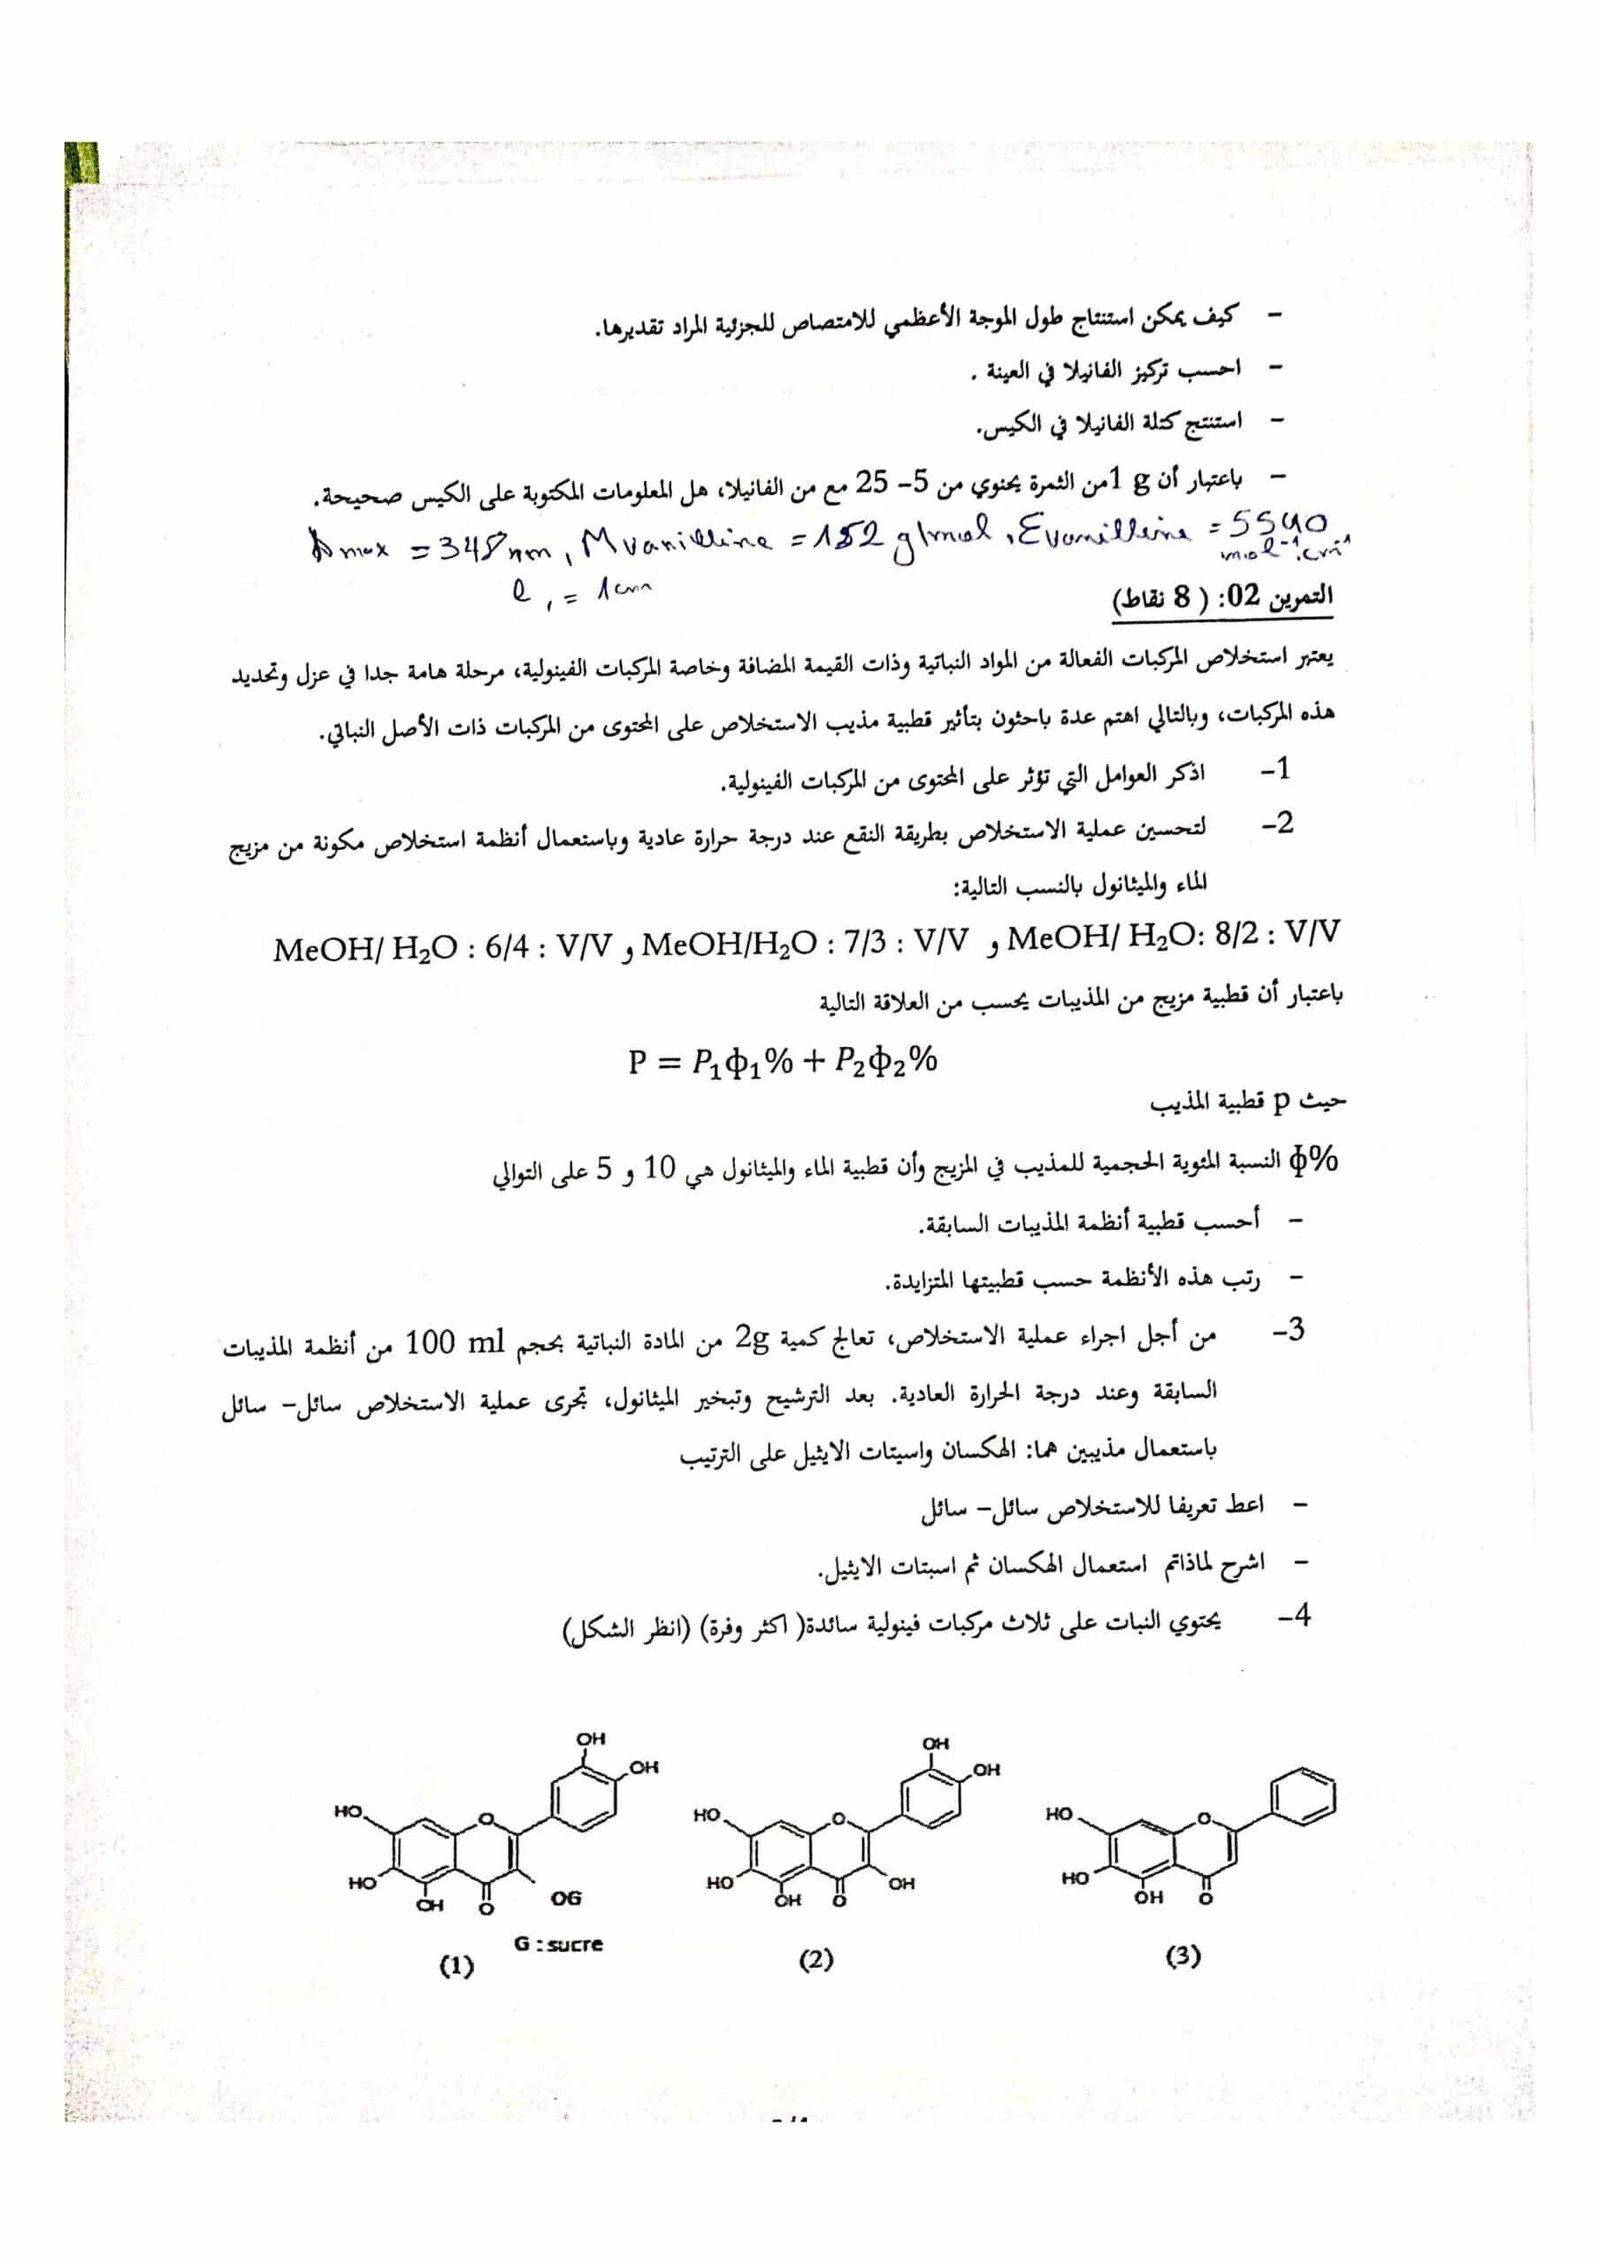 - كيف يمكن استنتاج طول الموجة الأعظمي للامتصاص للجزئية المراد تقديرها.
- احسب تركيز الفانيلا في العينة .
- استنتج كتلة الفانيلا في الكيس.
- باعتبار أن 1 g من الثمرة يحنوي من 5- 25 مع من الفانيلا، هل المعلومات المكتوبة على الكيس صحيحة.
max = 348 nm, M vanilline = 152 g/mol, Evanilline = 5540
mol-1.cm-1
l, = 1cm
التمرين 02: ( 8 نقاط)
يعتبر استخلاص المركبات الفعالة من المواد النباتية وذات القيمة المضافة وخاصة المركبات الفينولية، مرحلة هامة جدا في عزل وتحديد
هذه المركبات، وبالتالي اهتم عدة باحثون بتأثير قطبية مذيب الاستخلاص على المحتوى من المركبات ذات الأصل النباتي.
1- اذكر العوامل التي تؤثر على المحتوى من المركبات الفينولية.
2- لتحسين عملية الاستخلاص بطريقة النقع عند درجة حرارة عادية وباستعمال أنظمة استخلاص مكونة من مزيج
الماء والميثانول بالنسب التالية:
MeOH/ H₂O : 6/4 : V/V و MeOH/H₂O : 7/3 : V/V و MeOH/ H₂O: 8/2 : V/V
باعتبار أن قطبية مزيج من المذيبات يحسب من العلاقة التالية
P = P₁ϕ₁% + P₂ϕ₂%
حيث p قطبية المذيب
ϕ% النسبة المئوية الحجمية للمذيب في المزيج وأن قطبية الماء والميثانول هي 10 و 5 على التوالي
- أحسب قطبية أنظمة المذيبات السابقة.
- رتب هذه الأنظمة حسب قطبيتها المتزايدة.
3- من أجل اجراء عملية الاستخلاص، تعالج كمية 2g من المادة النباتية بحجم 100 ml من أنظمة المذيبات
السابقة وعند درجة الحرارة العادية. بعد الترشيح وتبخير الميثانول، تجرى عملية الاستخلاص سائل- سائل
باستعمال مذيبين هما: الهكسان واسيتات الايثيل على الترتيب
- اعط تعريفا للاستخلاص سائل- سائل
- اشرح لماذاتم استعمال الهكسان ثم اسبتات الايثيل.
4- يحتوي النبات على ثلاث مركبات فينولية سائدة( اكثر وفرة) (انظر الشكل)
OH
OH
HO
O
HO
OH
O
OG
G : sucre
(1)
OH
OH
HO
O
HO
OH
O
OH
(2)
HO
O
HO
OH
O
(3)